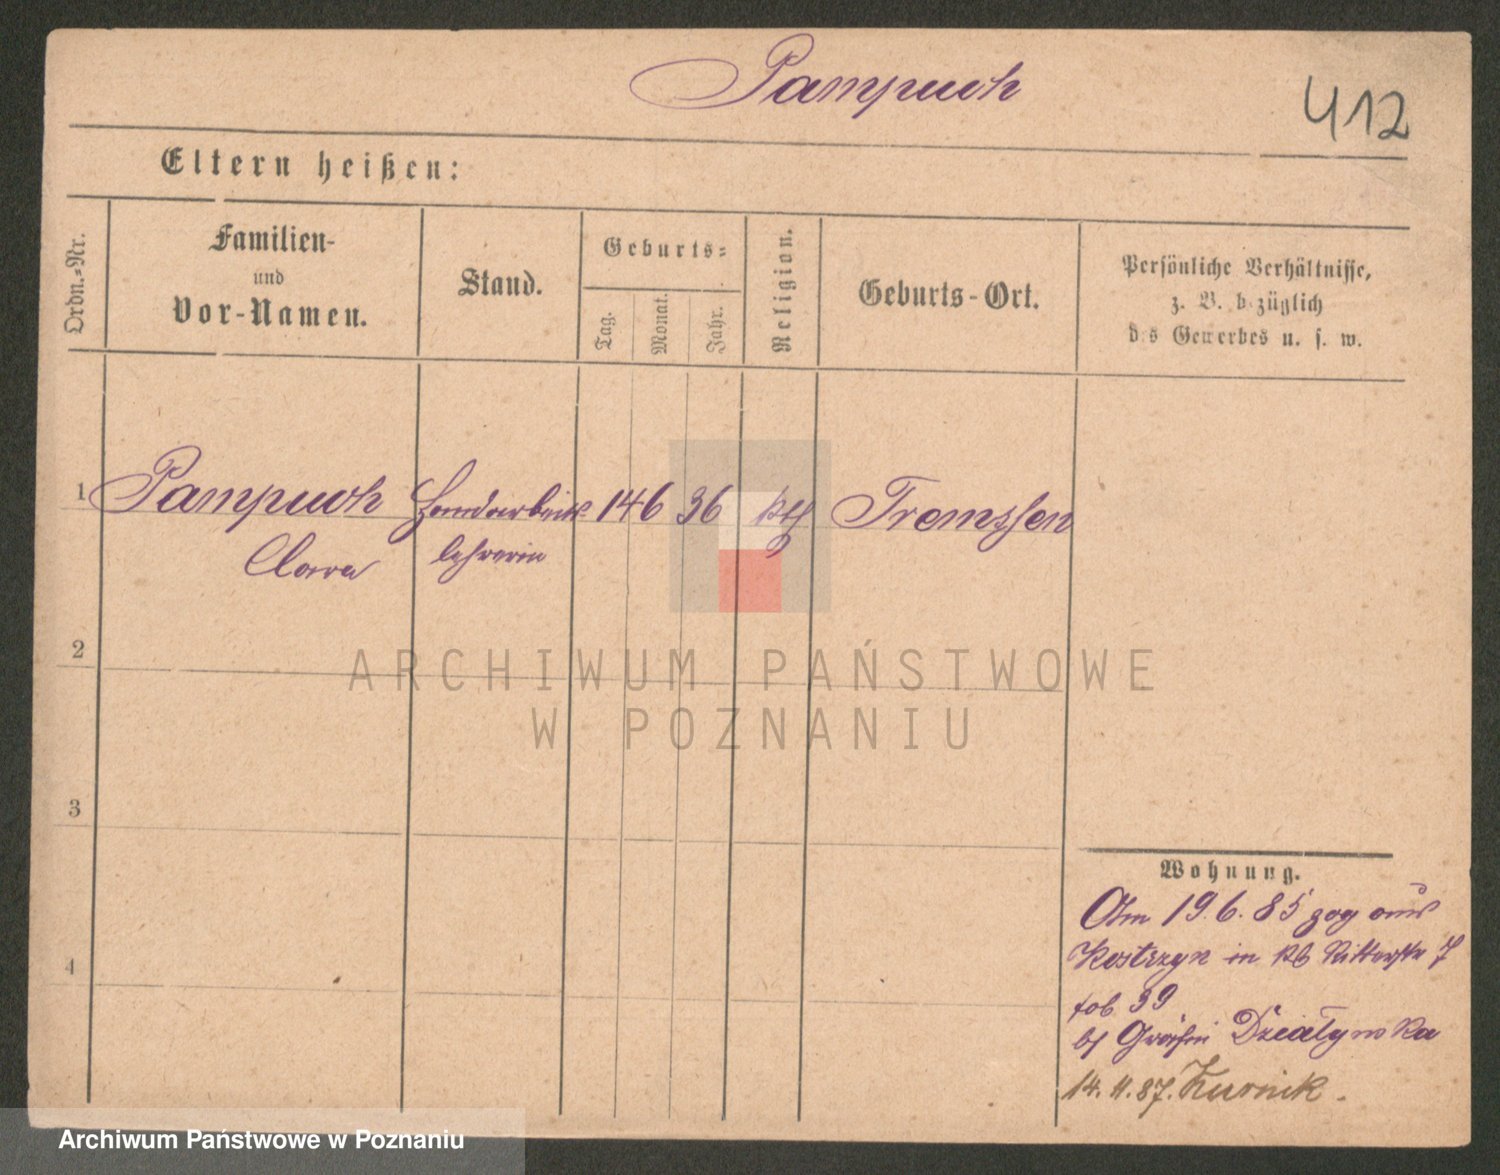 Pampuch
412
Eltern heißen:
Ordn.-Nr.
Familien-
und
Vor-Namen.
Stand.
Geburts-
Tag.
Monat.
Jahr.
Religion.
Geburts-Ort.
Persönliche Verhältnisse,
z. B. bezüglich
des Gewerbes u. s. w.
1 Pampuch Handarbeits- 14 6 36 kth Tremessen
Clara lehrerin
2
3
4
Wohnung.
Am 19.6.85 zog aus
Kostrzyn in Ritterstr 7
39
bei Gräfin Działynska
14.4.87. Kurnik.
ARCHIWUM PAŃSTWOWE
W POZNANIU
Archiwum Państwowe w Poznaniu